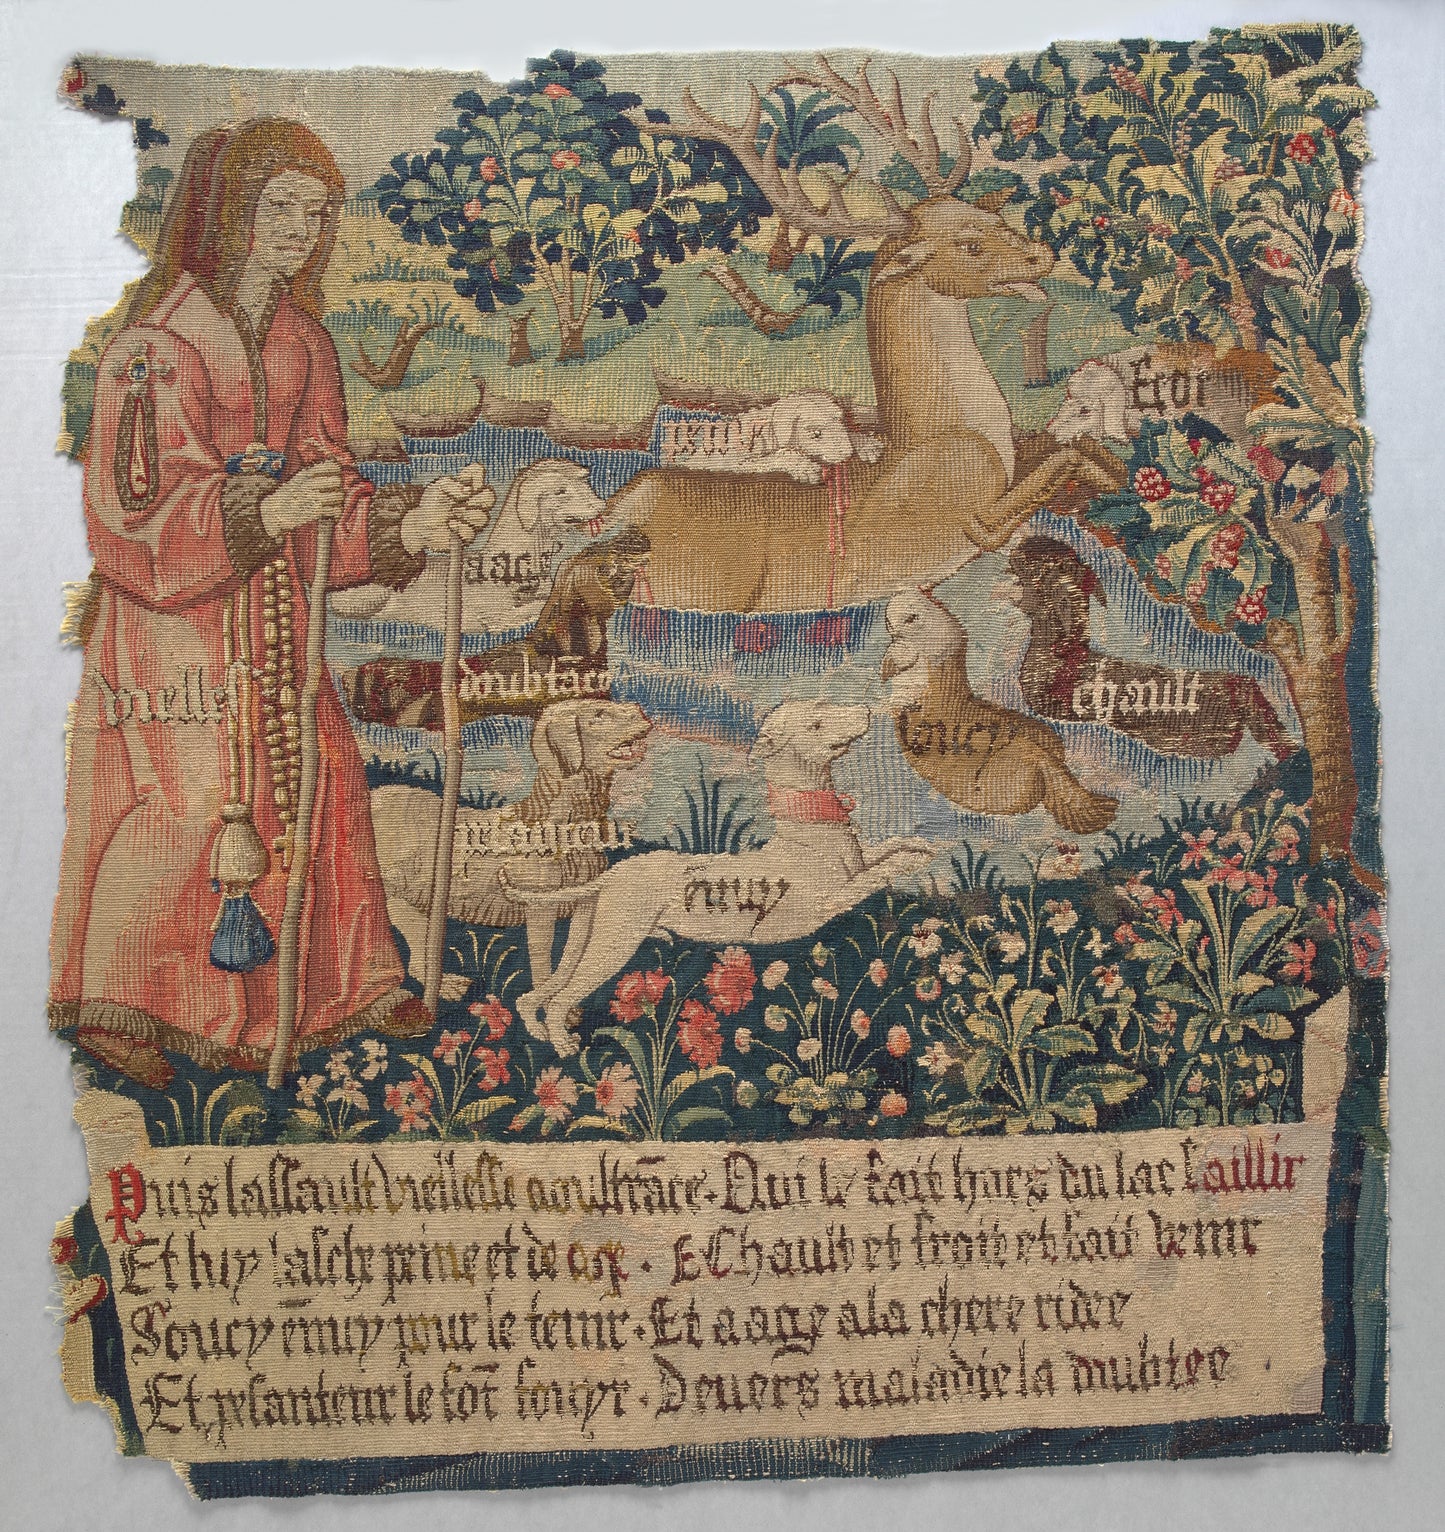 Froit
peine
aage
doubtāce
vielles
chault
soucy
pesanteur
ēnuy
Puis lassault viellesse a oultrāce · Qui le fait hors du lac saillir
Et luy lasche peine et de age · Et Chault et froit et fait venir
Soucy ēnuy pour le tenir · Et a age a la chere ridee
Et pesanteur le fōt fouyr · Devers maladie la doubtee